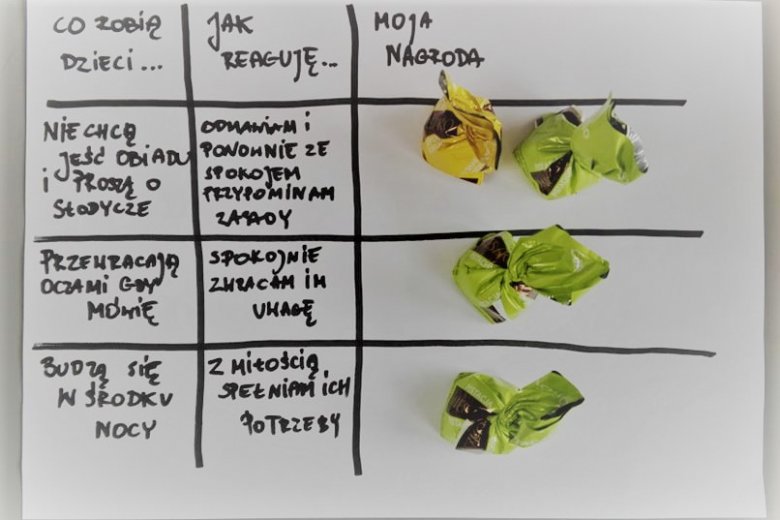 CO ROBIĄ
DZIECI...
JAK
REAGUJĘ...
MOJA
NAGRODA
NIE CHCĄ
JEŚĆ OBIADU
I PROSZĄ O
SŁODYCZE
ODMAWIAM I
PONOWNIE ZE
SPOKOJEM
PRZYPOMINAM
ZASADY
PRZEWRACAJĄ
OCZAMI GDY
MÓWIĘ
SPOKOJNIE
ZWRACAM IM
UWAGĘ
BUDZĄ SIĘ
W ŚRODKU
NOCY
Z MIŁOŚCIĄ
SPEŁNIAM ICH
POTRZEBY